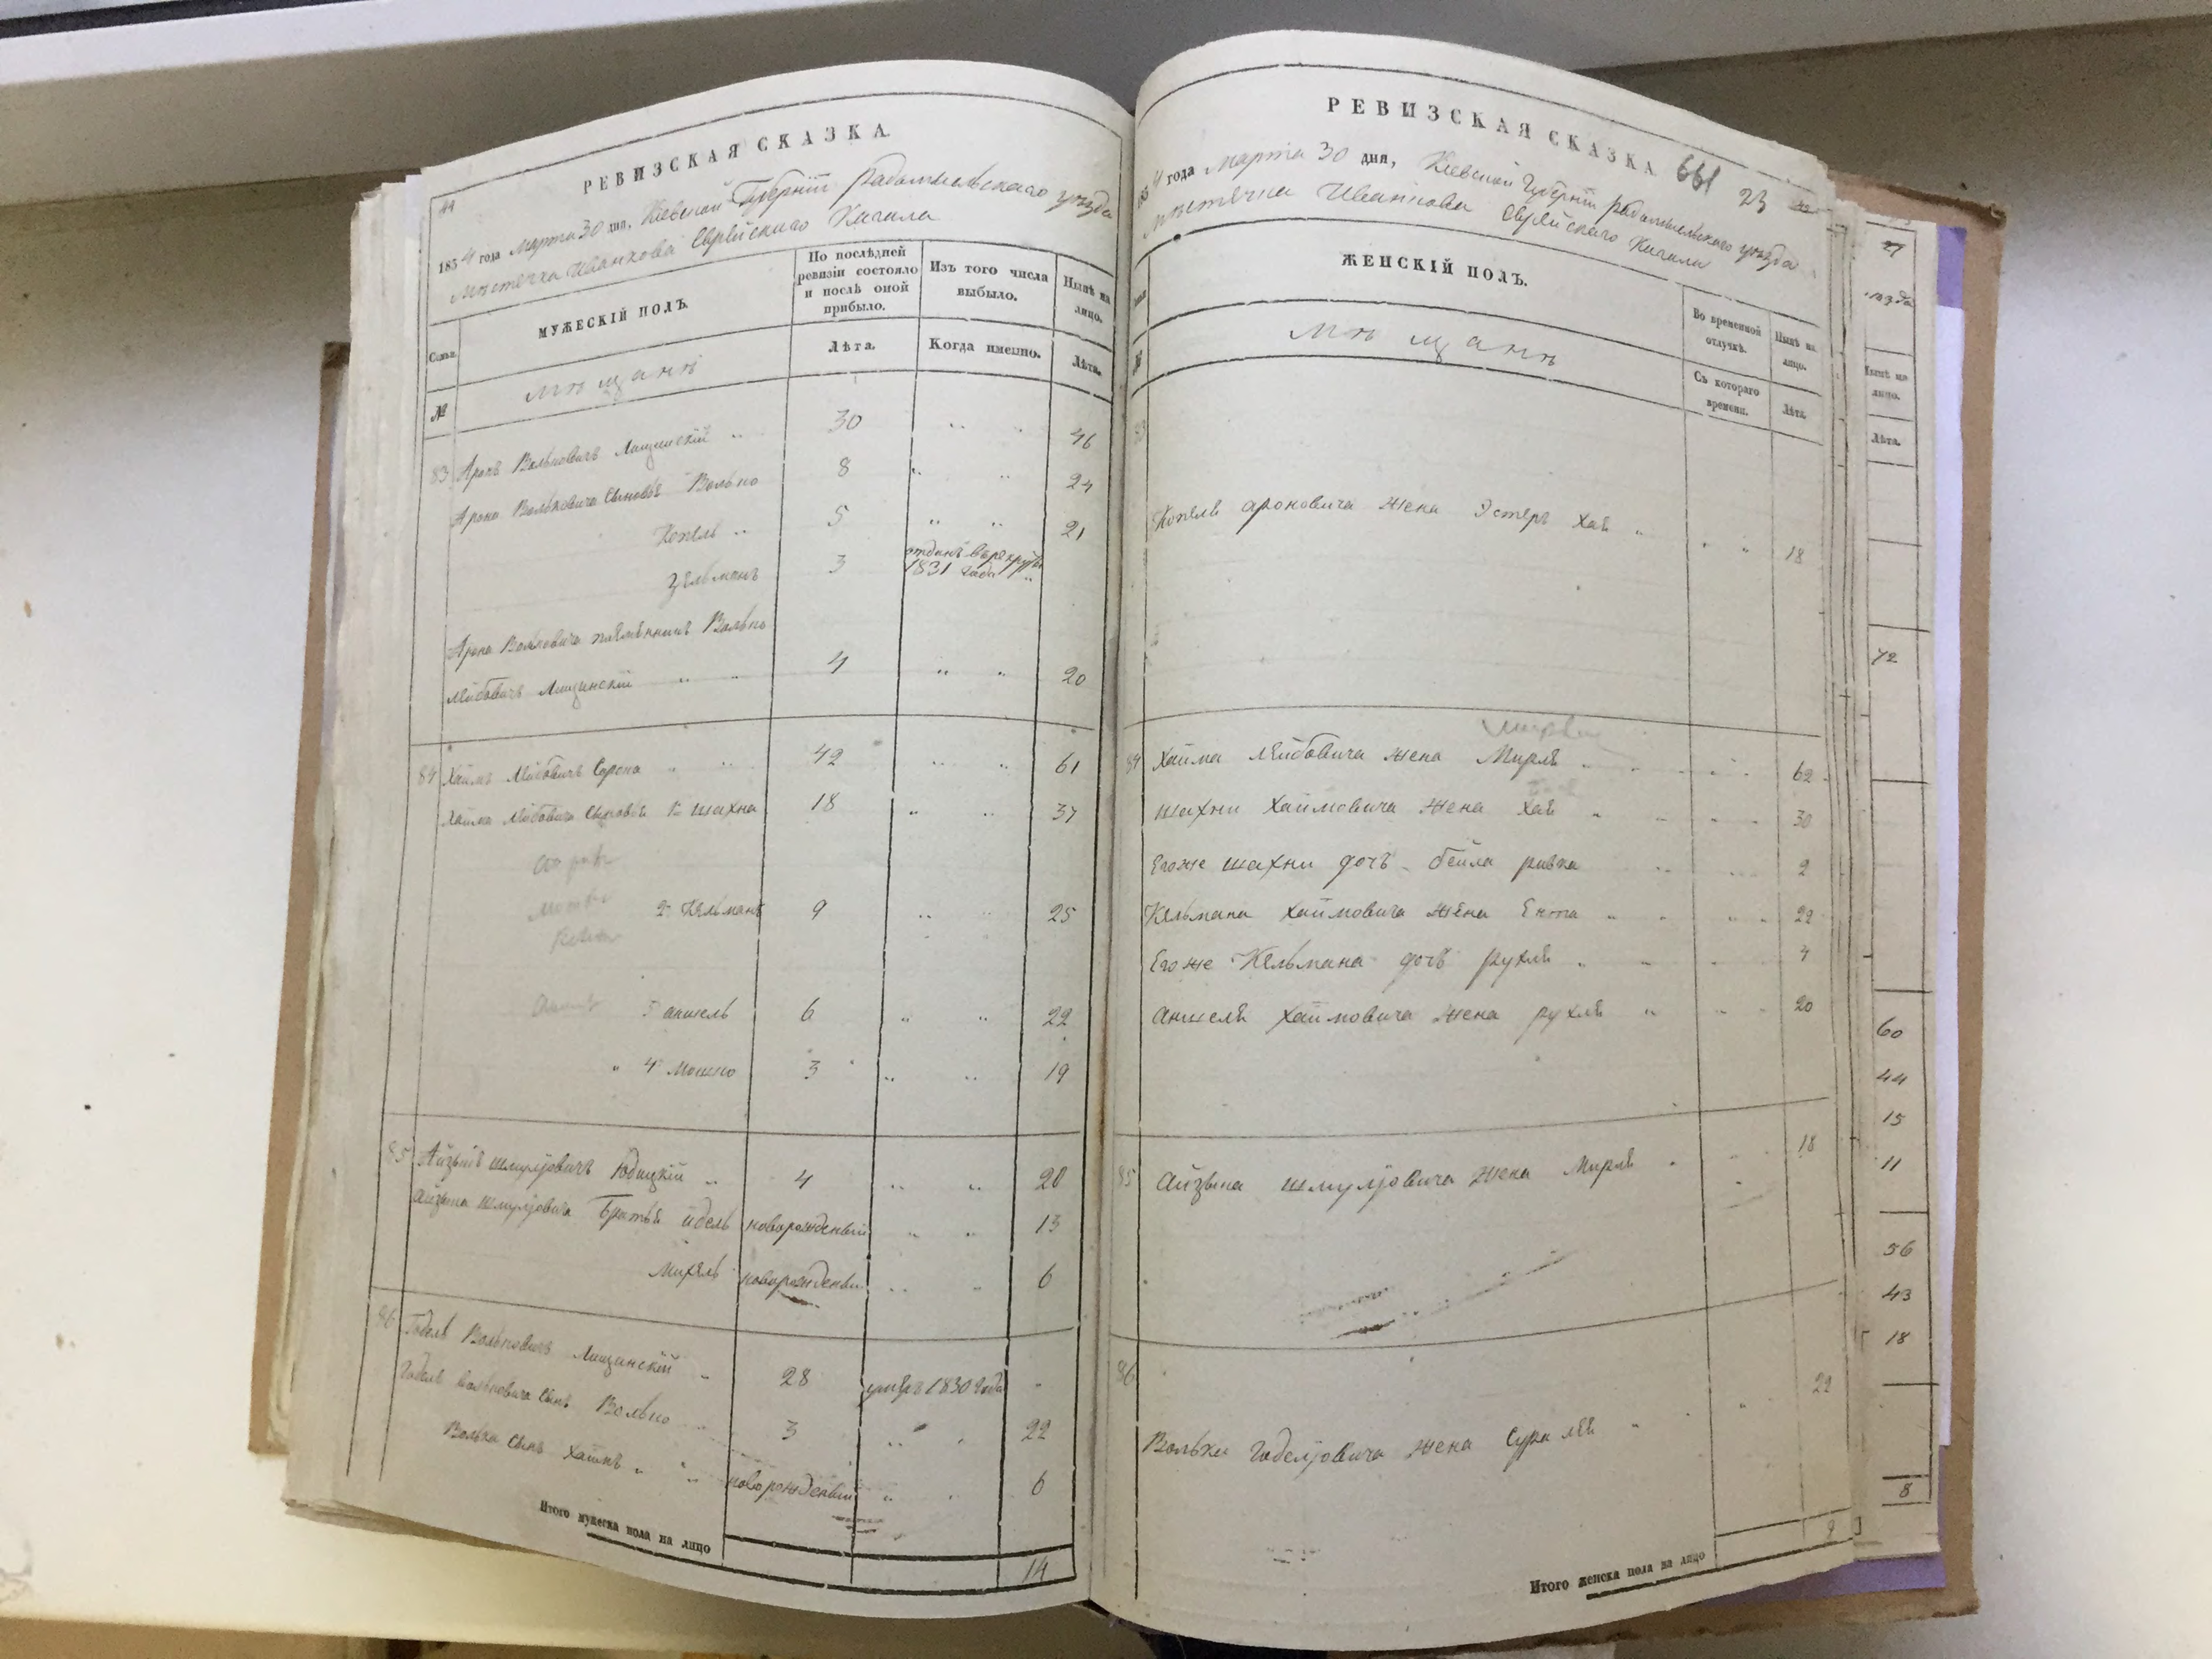 44
РЕВИЗСКАЯ СКАЗКА.
1854 года Марта 30 дня, Кіевской Губерніи радомысльскаго уѣзда
мѣстечка Иванкова Еврейскаго Кагала
Семьи.
МУЖЕСКІЙ ПОЛЪ.
По послѣдней ревизіи состояло и послѣ оной прибыло.
Изъ того числа выбыло.
Нынѣ на лицо.
№
мѣщанѣ
Лѣта.
Когда именно.
Лѣта.
83 Аронъ Вольковичъ Лищинскій 30 46
Арона Вольковича Сыновья Волько 8 24
Копель 5 21
Зельманъ 3 отданъ въ рекруты 1831 года
Арона Вольковича племянникъ Волько
Лейбовичъ Лищинскій 4 20
84 Хаимъ Лейбовичъ Сорока 42 61
Хаима Лейбовича Сыновья 1й шахна 18 37
2й Кельманъ 9 25
3 аншель 6 22
4й Мошко 3 19
85 Айзыкъ шмулёвичъ Юдицкій 4 20
айзыка шмулёвича Братья идель новорожденый 13
Михель новорожденый 6
86 Годель Вольковичъ Лищинскій 28 умеръ 1830 года
Годеля Вольковича Сынъ Волько 3 22
Волька Сынъ Хаимъ новорожденый 6
Итого мужеска пола на лицо 14
РЕВИЗСКАЯ СКАЗКА 661
23
1854 года марта 30 дня, Кіевской Губерніи радомысльскаго уѣзда
мѣстечка Иванкова Еврейскаго Кагала
ЖЕНСКІЙ ПОЛЪ.
Во временной отлучкѣ.
Нынѣ на лицо.
№
мѣщанѣ
Съ котораго времени.
Лѣта.
83
Копеля ароновича жена Эстеръ хая 18
84 Хаима Лейбовича жена Мирля 62
шахни хаимовича жена хая 30
Егоже шахни дочь бейла ривка 2
Кельмана хаимовича жена Ента 22
Егоже Кельмана дочь рухля 4
аншеля хаимовича жена рухля 20
85 айзыка шмулёвича жена Мирля 18
86
Вольки годелёвича жена Сура лея 22
Итого женска пола на лицо 9
27
уѣзда
Нынѣ на лицо.
Лѣта.
72
60
44
15
11
56
43
18
8